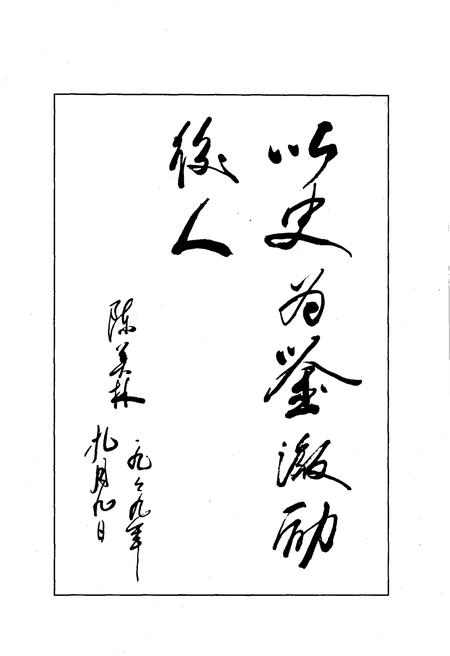 以史为鉴激励
後人
陈美林
一九九九年
九月九日